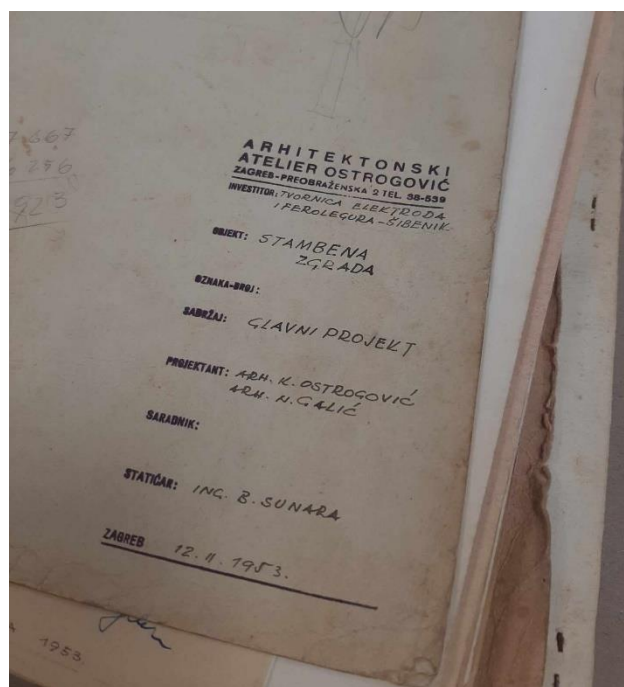 667
296
923
ARHITEKTONSKI
ATELIER OSTROGOVIĆ
ZAGREB-PREOBRAŽENSKA 2 TEL. 38-539
INVESTITOR: TVORNICA ELEKTRODA
I FEROLEGURA-ŠIBENIK.
OBJEKT: STAMBENA
ZGRADA
OZNAKA-BROJ:
SADRŽAJ: GLAVNI PROJEKT
PROJEKTANT: ARH. K. OSTROGOVIĆ
ARH. N. GALIĆ
SARADNIK:
STATIČAR: ING. B. SUNARA
ZAGREB 12. II. 1953.
1953.